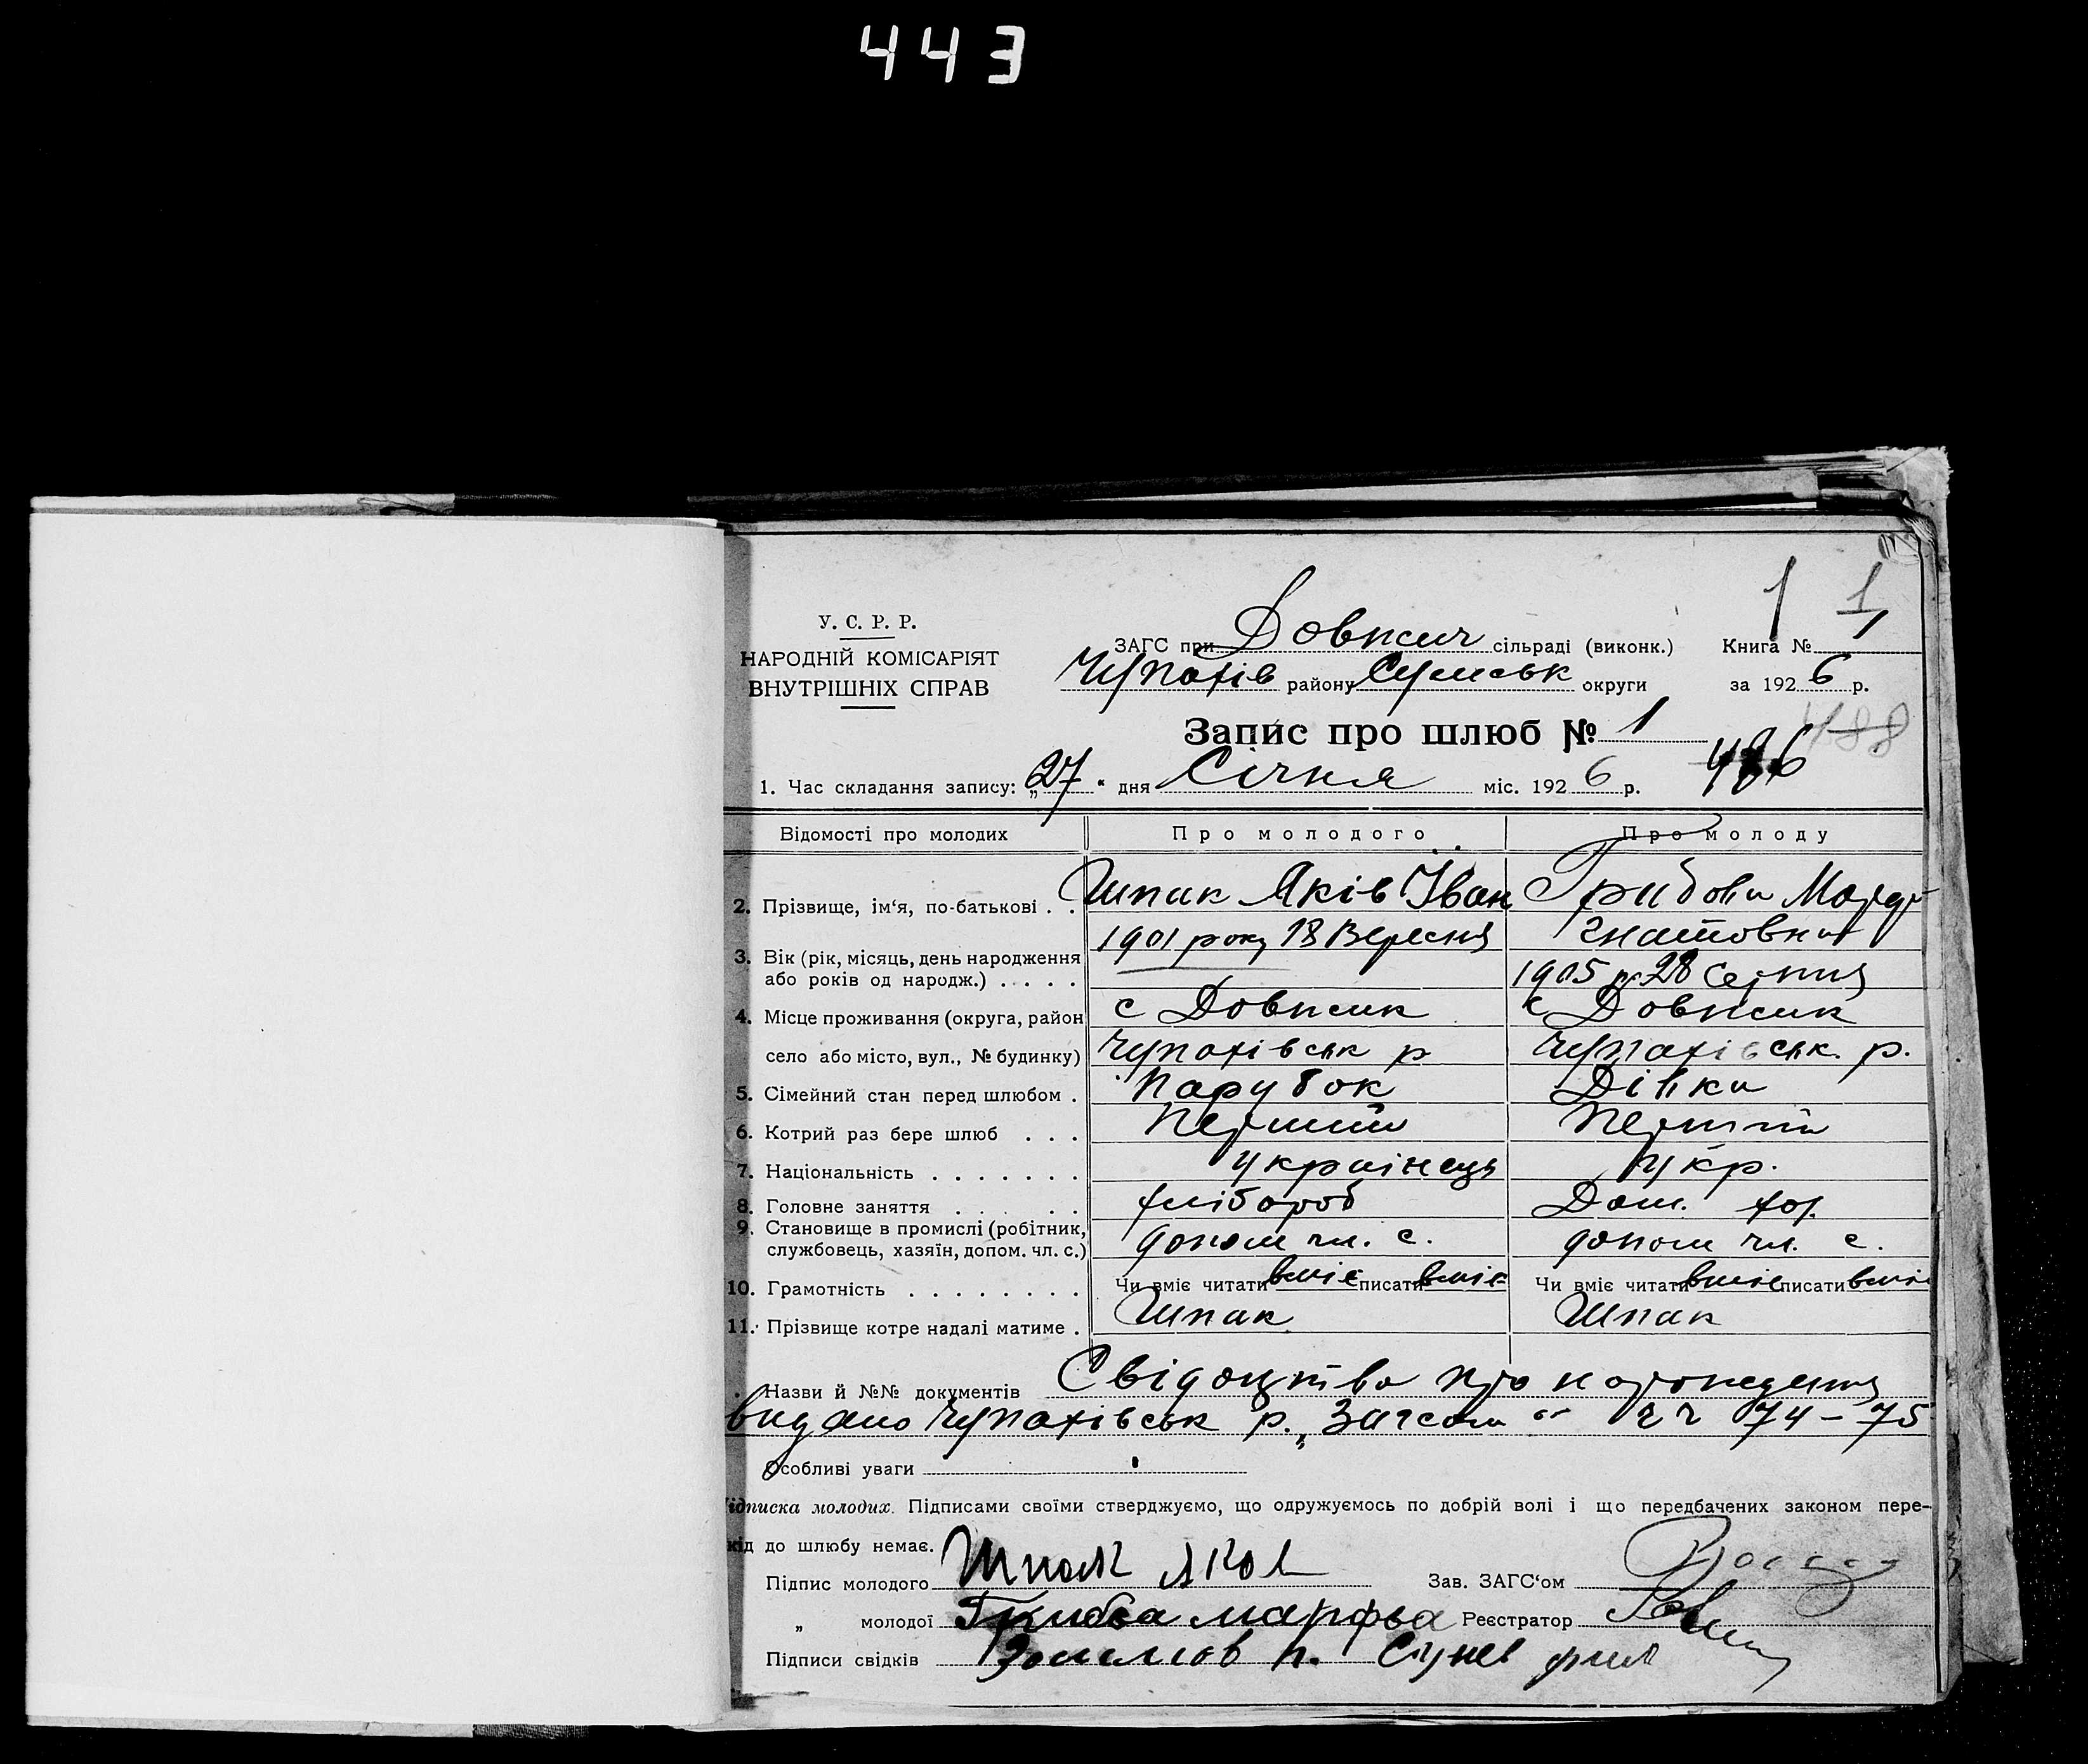 443
1 1
У. С. Р. Р.
НАРОДНІЙ КОМІСАРІЯТ
ВНУТРІШНІХ СПРАВ
ЗАГС при Довжич сільраді (виконк.) Книга № 1
Чупахів району Сумськ округи за 1926 р.
Запис про шлюб № 1
488
486
1. Час складання запису: „27“ дня Січня міс. 1926 р.
Відомості про молодих Про молодого Про молоду
2. Прізвище, ім'я, по-батькові . . Шпак Яків Іван Грибова
Гнатовна
3. Вік (рік, місяць, день народження 1901 року 18 Вересня
або років од народж.) . . . . 1905 р. 28 Серпня
4. Місце проживання (округа, район с Довжик с Довжик
село або місто, вул., № будинку) Чупахівськ р Чупахівськ. р.
5. Сімейний стан перед шлюбом . Парубок Дівка
6. Котрий раз бере шлюб . . . Перший Перший
7. Національність . . . . . . . українець укр.
8. Головне заняття . . . . . хлібороб Дом. хоз.
9. Становище в промислі (робітник,
службовець, хазяїн, допом. чл. с.) допом чл. с. допом чл. с.
10. Грамотність . . . . . . . . Чи вміє читати вміє писати вміє Чи вміє читати вміє писати вміє
11. Прізвище котре надалі матиме . Шпак Шпак
Назви й №№ документів Свідоцтва про народження
видано Чупахівськ р. „Загсом“ чч 74-75
Особливі уваги
ідписка молодих. Підписами своїми стверджуємо, що одружуємось по добрій волі і що передбачених законом пере-
кід до шлюбу немає.
Підпис молодого Шпак Яков Зав. ЗАГС'ом
„ молодої Грибва марфва Реєстратор
Підписи свідків п.